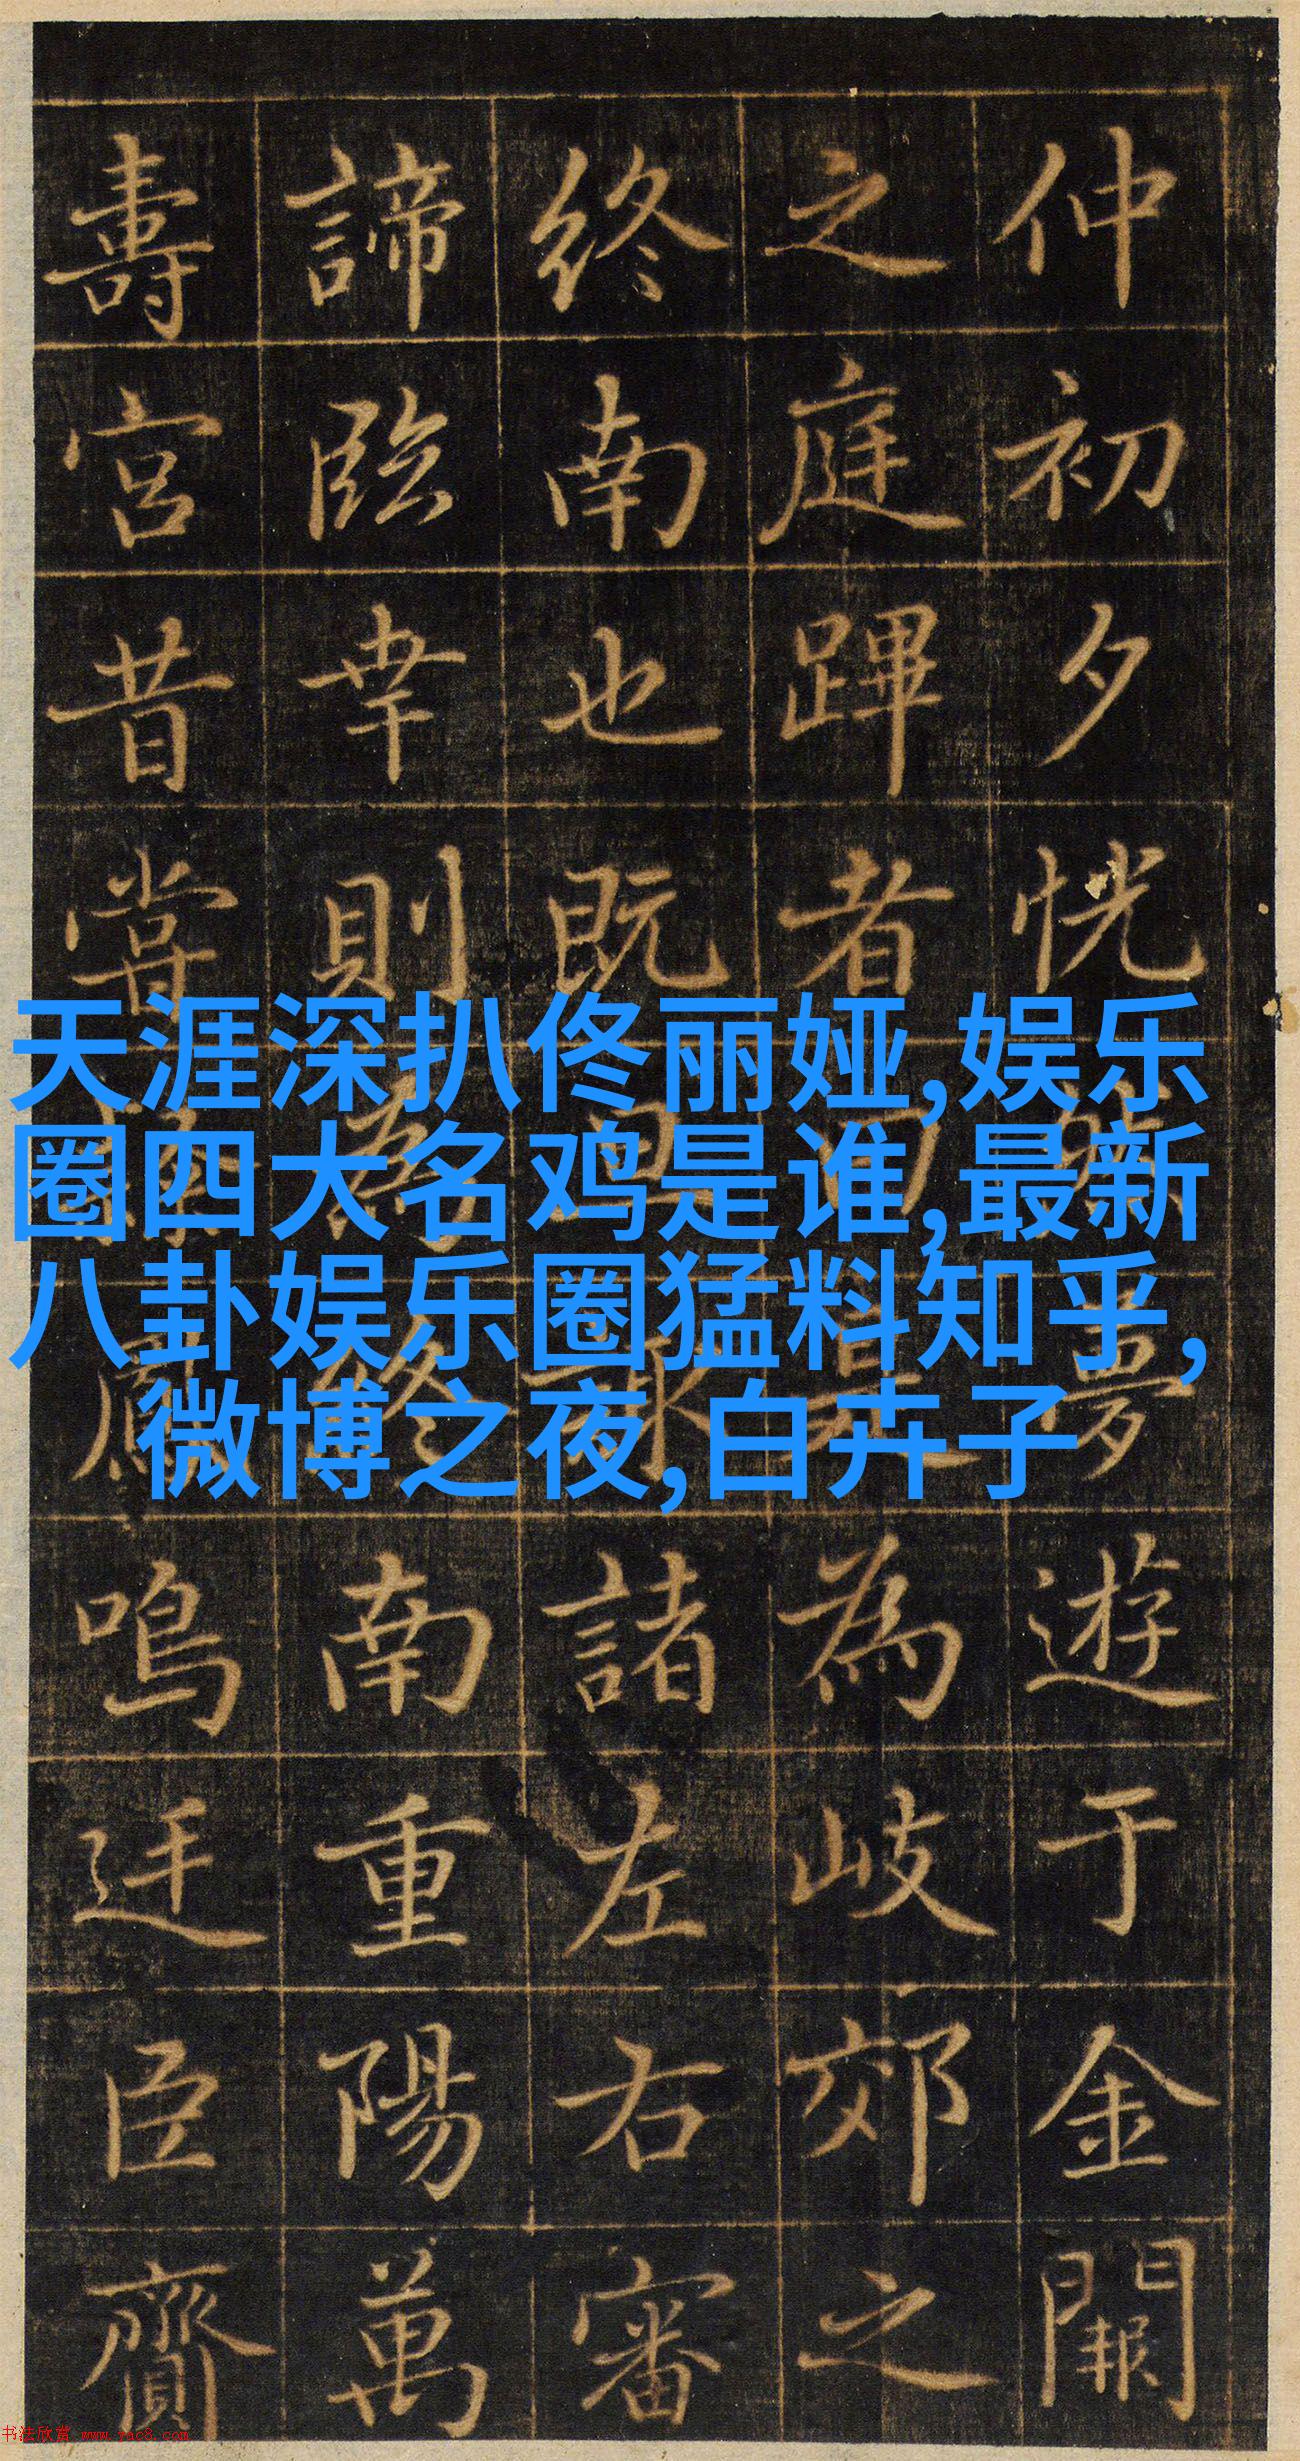 仲初夕恍夢遊于金闕
之庭蹕者曰是為岐郊之
終南也既諸左右審
諦臨幸則終南重陽萬
壽宮昔嘗鳴迋臣齎
天涯深扒佟丽娅,娱乐
圈四大名鸡是谁,最新
八卦娱乐圈猛料知乎,
微博之夜,白卉子
书法欣赏 www.yac8.com